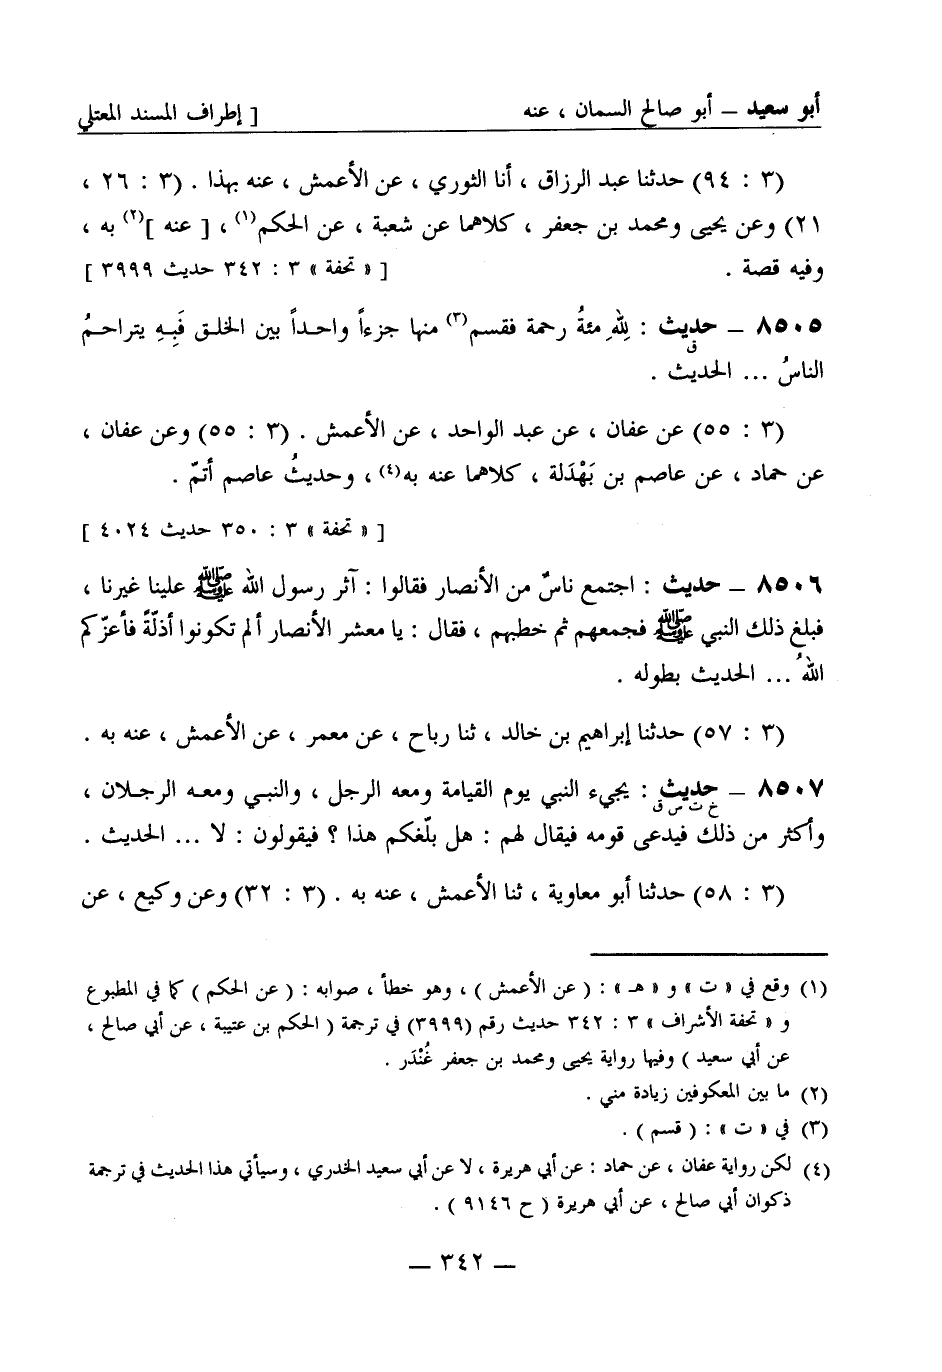 أبو سعيد – أبو صالح السمان ، عنه [ إطراف المسند المعتلي
(٣ : ٩٤) حدثنا عبد الرزاق ، أنا الثوري ، عن الأعمش ، عنه بهذا . (٣ : ٢٦ ،
٢١) وعن يحيى ومحمد بن جعفر ، كلاهما عن شعبة ، عن الحكم(١) ، [ عنه ](٢) به ،
وفيه قصة . [ « تحفة » ٣ : ٣٤٢ حديث ٣٩٩٩ ]
٨٥٠٥ – حديث : لِلّٰهِ مئةُ رحمة فقسم(٣) منها جزءاً واحداً بين الخلق فَبِهِ يتراحمُ
ق
الناسُ ... الحديث .
(٣ : ٥٥) عن عفان ، عن عبد الواحد ، عن الأعمش . (٣ : ٥٥) وعن عفان ،
عن حماد ، عن عاصم بن بَهْدَلة ، كلاهما عنه به(٤) ، وحديثُ عاصم أتمّ .
[ « تحفة » ٣ : ٣٥٠ حديث ٤٠٢٤ ]
٨٥٠٦ – حديث : اجتمع ناسٌ من الأنصار فقالوا : آثر رسول الله ﷺ علينا غيرنا ،
فبلغ ذلك النبي ﷺ فجمعهم ثم خطبهم ، فقال : يا معشر الأنصار ألم تكونوا أذلّةً فأعزّكم
اللهُ ... الحديث بطوله .
(٣ : ٥٧) حدثنا إبراهيم بن خالد ، ثنا رباح ، عن معمر ، عن الأعمش ، عنه به .
٨٥٠٧ – حديث : يجيء النبي يوم القيامة ومعه الرجل ، والنبي ومعه الرجلان ،
خ ت س ق
وأكثر من ذلك فيدعى قومه فيقال لهم : هل بلّغكم هذا ؟ فيقولون : لا ... الحديث .
(٣ : ٥٨) حدثنا أبو معاوية ، ثنا الأعمش ، عنه به . (٣ : ٣٢) وعن وكيع ، عن
(١) وقع في « ت » و « هـ » : ( عن الأعمش ) ، وهو خطأ ، صوابه : ( عن الحكم ) كما في المطبوع
و « تحفة الأشراف » ٣ : ٣٤٢ حديث رقم (٣٩٩٩) في ترجمة ( الحكم بن عتيبة ، عن أبي صالح ،
عن أبي سعيد ) وفيها رواية يحيى ومحمد بن جعفر غُنْدَر .
(٢) ما بين المعكوفين زيادة مني .
(٣) في « ت » : ( قسم ) .
(٤) لكن رواية عفان ، عن حماد : عن أبي هريرة ، لا عن أبي سعيد الخدري ، وسيأتي هذا الحديث في ترجمة
ذكوان أبي صالح ، عن أبي هريرة ( ح ٩١٤٦ ) .
— ٣٤٢ —